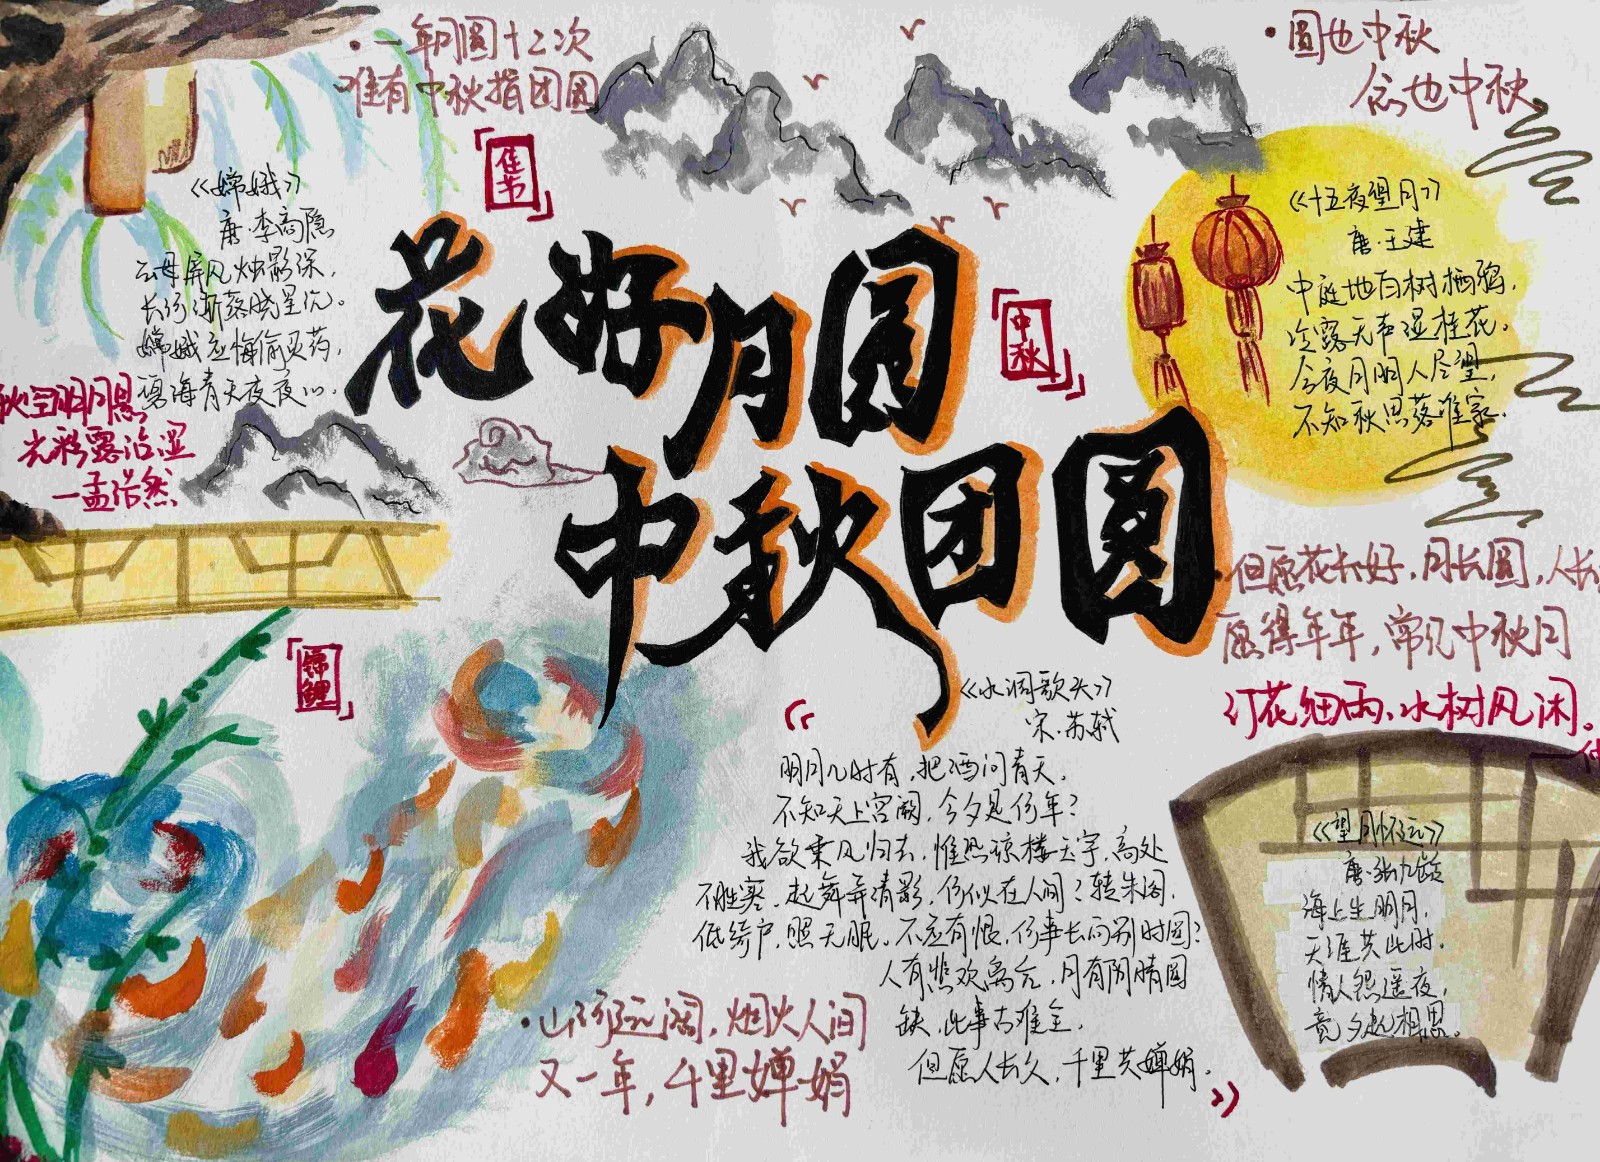 ·一年月圆十二次
唯有中秋指团圆
佳节
《嫦娥》
唐·李商隐
云母屏风烛影深，
长河渐落晓星沉。
嫦娥应悔偷灵药，
碧海青天夜夜心。
秋空明月悬
光彩露沾湿
一孟浩然
花好月圆
中秋团圆
中秋
·圆也中秋
念也中秋
《十五夜望月》
唐·王建
中庭地白树栖鸦，
冷露无声湿桂花。
今夜月明人尽望，
不知秋思落谁家。
·但愿花长好，月长圆，人长
愿得年年，常见中秋月
灯花细雨，水树风闲。
锦鲤
《水调歌头》
宋·苏轼
明月几时有，把酒问青天。
不知天上宫阙，今夕是何年？
我欲乘风归去，惟恐琼楼玉宇，高处
不胜寒。起舞弄清影，何似在人间？转朱阁，
低绮户，照无眠。不应有恨，何事长向别时圆？
人有悲欢离合，月有阴晴圆
缺，此事古难全。
但愿人长久，千里共婵娟。
·山河远阔，烟火人间
又一年，千里婵娟
《望月怀远》
唐·张九龄
海上生明月，
天涯共此时。
情人怨遥夜，
竟夕起相思。